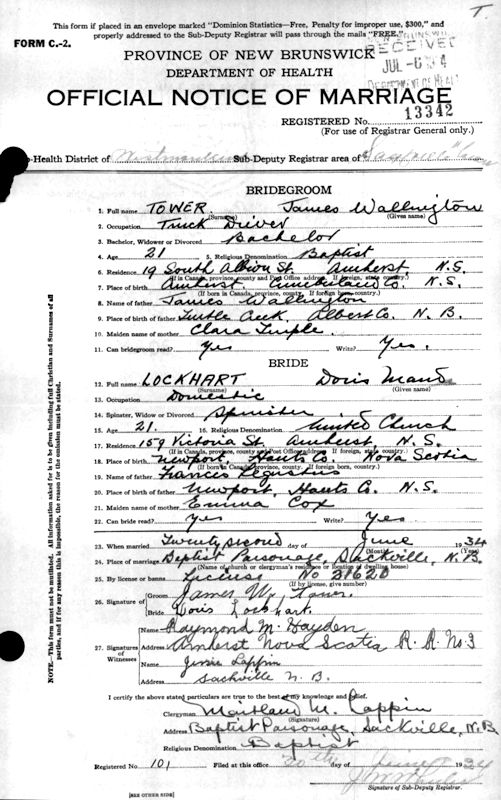 T.
This form if placed in an envelope marked "Dominion Statistics—Free, Penalty for improper use, $300," and
properly addressed to the Sub-Deputy Registrar will pass through the mails "FREE."
FORM C.-2.
PROVINCE OF NEW BRUNSWICK
RECEIVED
DEPARTMENT OF HEALTH
JUL -6
DEPARTMENT OF HEALTH
OFFICIAL NOTICE OF MARRIAGE
REGISTERED No. 13342
(For use of Registrar General only.)
-Health District of Westmorland Sub-Deputy Registrar area of Sackville
BRIDEGROOM
1. Full name TOWER James Wallington
(Surname) (Given names)
2. Occupation Truck Driver
3. Bachelor, Widower or Divorced Bachelor
4. Age 21 5. Religious Denomination Baptist
6. Residence 19 South Albion St. Amherst, N.S.
(If in Canada, province, county and Post Office address. If foreign, state country.)
7. Place of birth Amherst, Cumberland Co. N.S.
(If born in Canada, province, county. If foreign born, country.)
8. Name of father James Wallington
9. Place of birth of father Turtle Creek, Albert Co. N.B.
10. Maiden name of mother Clara
11. Can bridegroom read? Yes Write? Yes.
BRIDE
12. Full name LOCKHART Doris Maud
(Surname) (Given names)
13. Occupation Domestic
14. Spinster, Widow or Divorced Spinster
15. Age 21. 16. Religious Denomination United Church
17. Residence 159 Victoria St. Amherst, N.S.
(If in Canada, province, county and Post Office address. If foreign, state country.)
18. Place of birth Newport, Hants Co. Nova Scotia
(If born in Canada, province, county. If foreign born, country.)
19. Name of father Francis
20. Place of birth of father Newport, Hants Co. N.S.
21. Maiden name of mother Emma Cox
22. Can bride read? Yes Write? Yes
23. When married Twenty second day of June 1934
(Month) (Year)
24. Place of marriage Baptist Parsonage, Sackville, N.B.
(Name of church or clergyman's residence or location of dwelling house)
25. By license or banns License No 31620
(If by license, give number)
26. Signature of
Groom James W. Tower.
Bride Doris Lockhart.
27. Signatures of Witnesses
Name Raymond M. Hayden
Address Amherst Nova Scotia R.R. No. 3
Name Jessie Lappin
Address Sackville N.B.
I certify the above stated particulars are true to the best of my knowledge and belief.
Clergyman Maitland M. Lappin
(Signature)
Address Baptist Parsonage, Sackville, N.B.
Religious Denomination Baptist
Registered No. 101 Filed at this office 30th day of June 1934
Signature of Sub-Deputy Registrar.
[SEE OTHER SIDE]
NOTE.—This form must not be mutilated. All information asked for is to be given including full Christian and Surnames of all
parties, and if for any reason this is impossible, the reason for the omission must be stated.